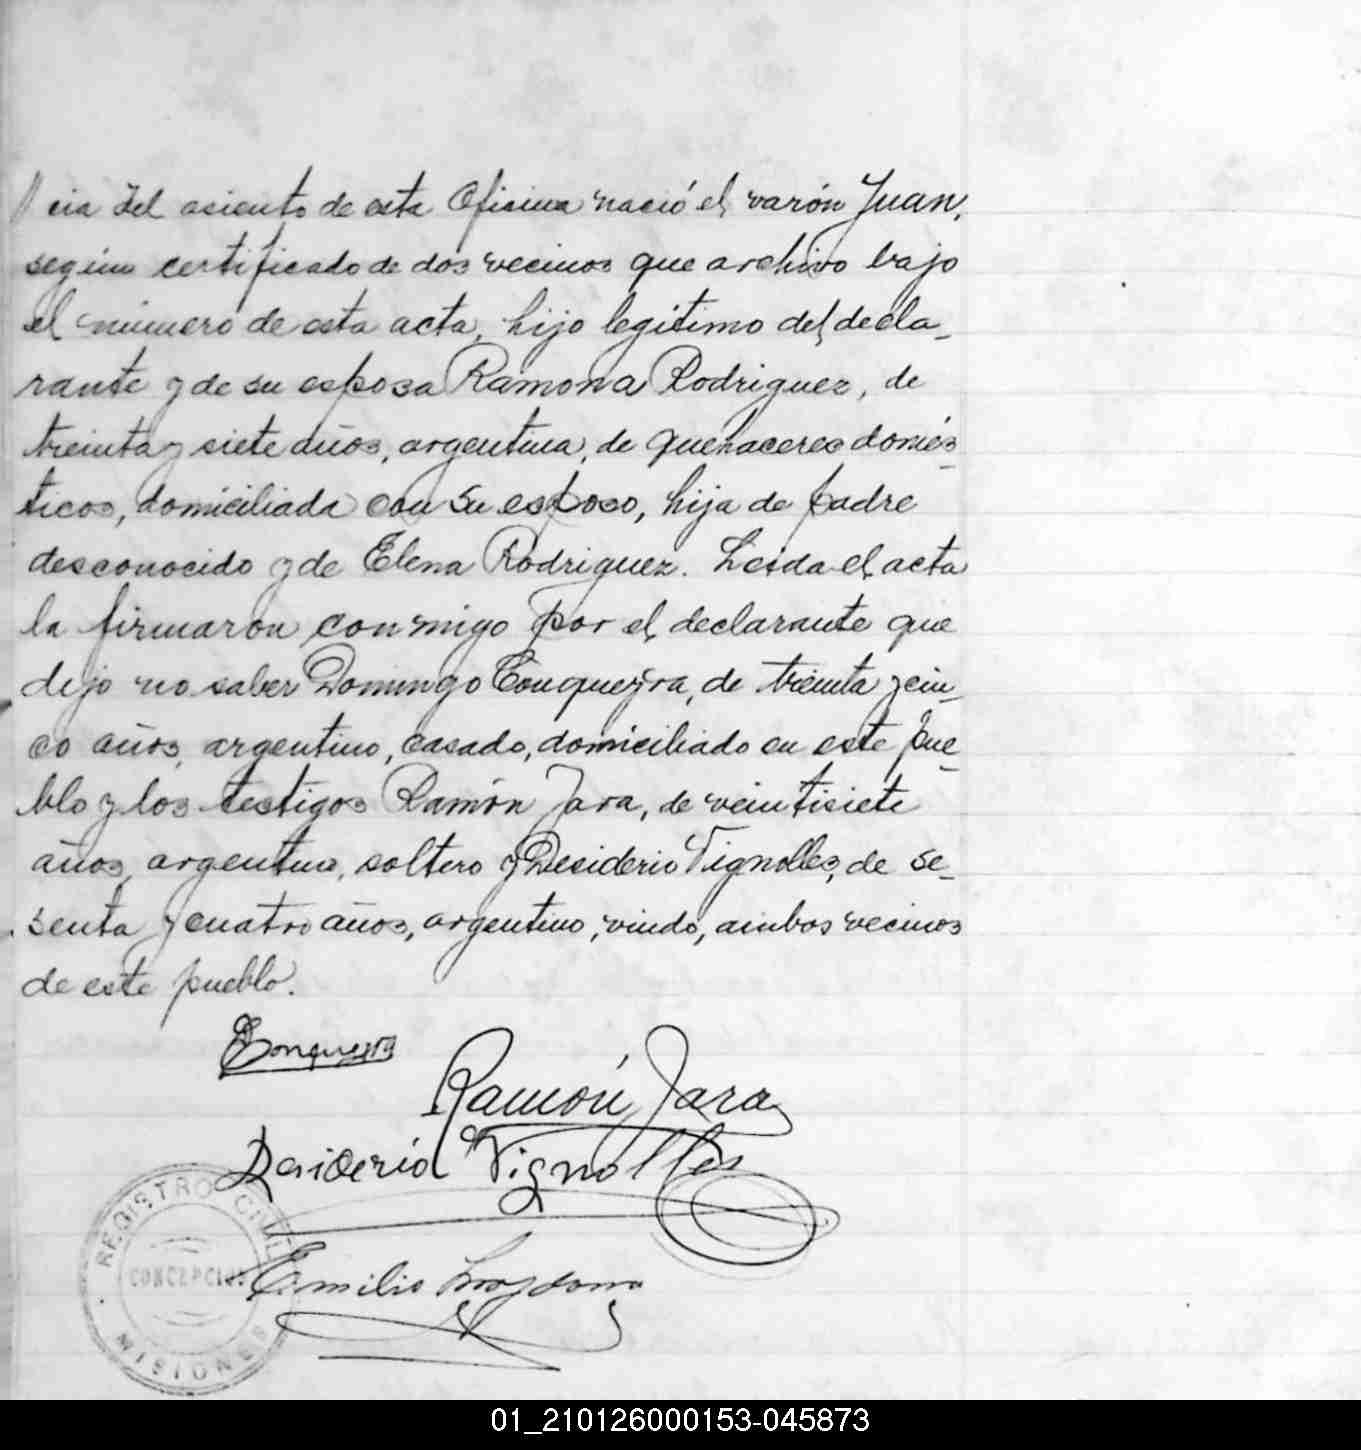 cia del asiento de esta Oficina nació el varón Juan,
según certificado de dos vecinos que archivo bajo
el número de esta acta, hijo legítimo del decla-
rante y de su esposa Ramona Rodriguez, de
treinta y siete años, argentina, de quehaceres domés-
ticos, domiciliada con su esposo, hija de padre
desconocido y de Elena Rodriguez. Leida el acta
la firmaron conmigo por el declarante que
dijo no saber Domingo Conqueyra, de treinta y cin-
co años, argentino, casado, domiciliado en este pue-
blo y los testigos Ramón Jara, de veintisiete
años, argentino, soltero y Desiderio Vignolles, de se-
senta y cuatro años, argentino, viudo, ambos vecinos
de este pueblo.
Ramón Jara
Desiderio Vignolles
Emilio
REGISTRO CIVIL
CONCEPCION
MISIONES
01_210126000153-045873